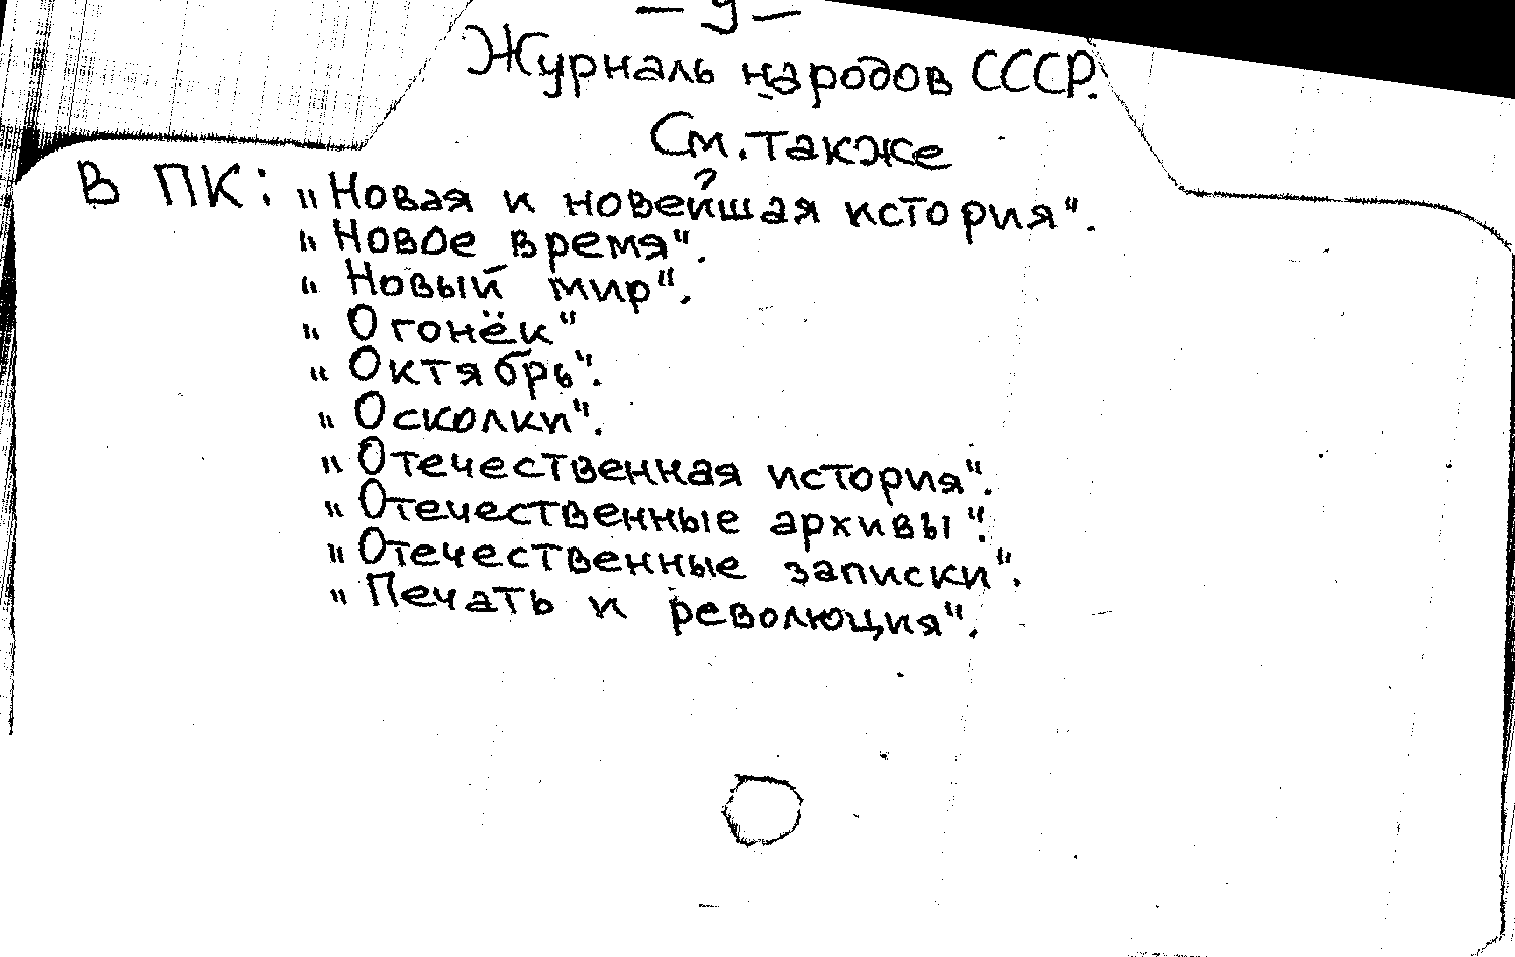 Журналь народов СССР.
См. также
В ПК: "Новая и новейшая история".
"Новое время".
"Новый мир".
"Огонёк"
"Октябрь".
"Осколки".
"Отечественная история".
"Отечественные архивы".
"Отечественные записки".
"Печать и революция".